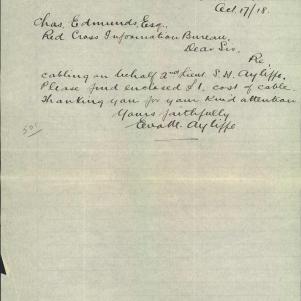 Oct. 17/18.
Chas. Edmunds, Esq.,
Red Cross Information Bureau,
Dear Sir,
Re,
cabling on behalf 2nd Lieut. S. H. Ayliffe,
Please find enclosed £1. cost of cable.
Thanking you for your kind attention
Yours faithfully
Eva M. Ayliffe